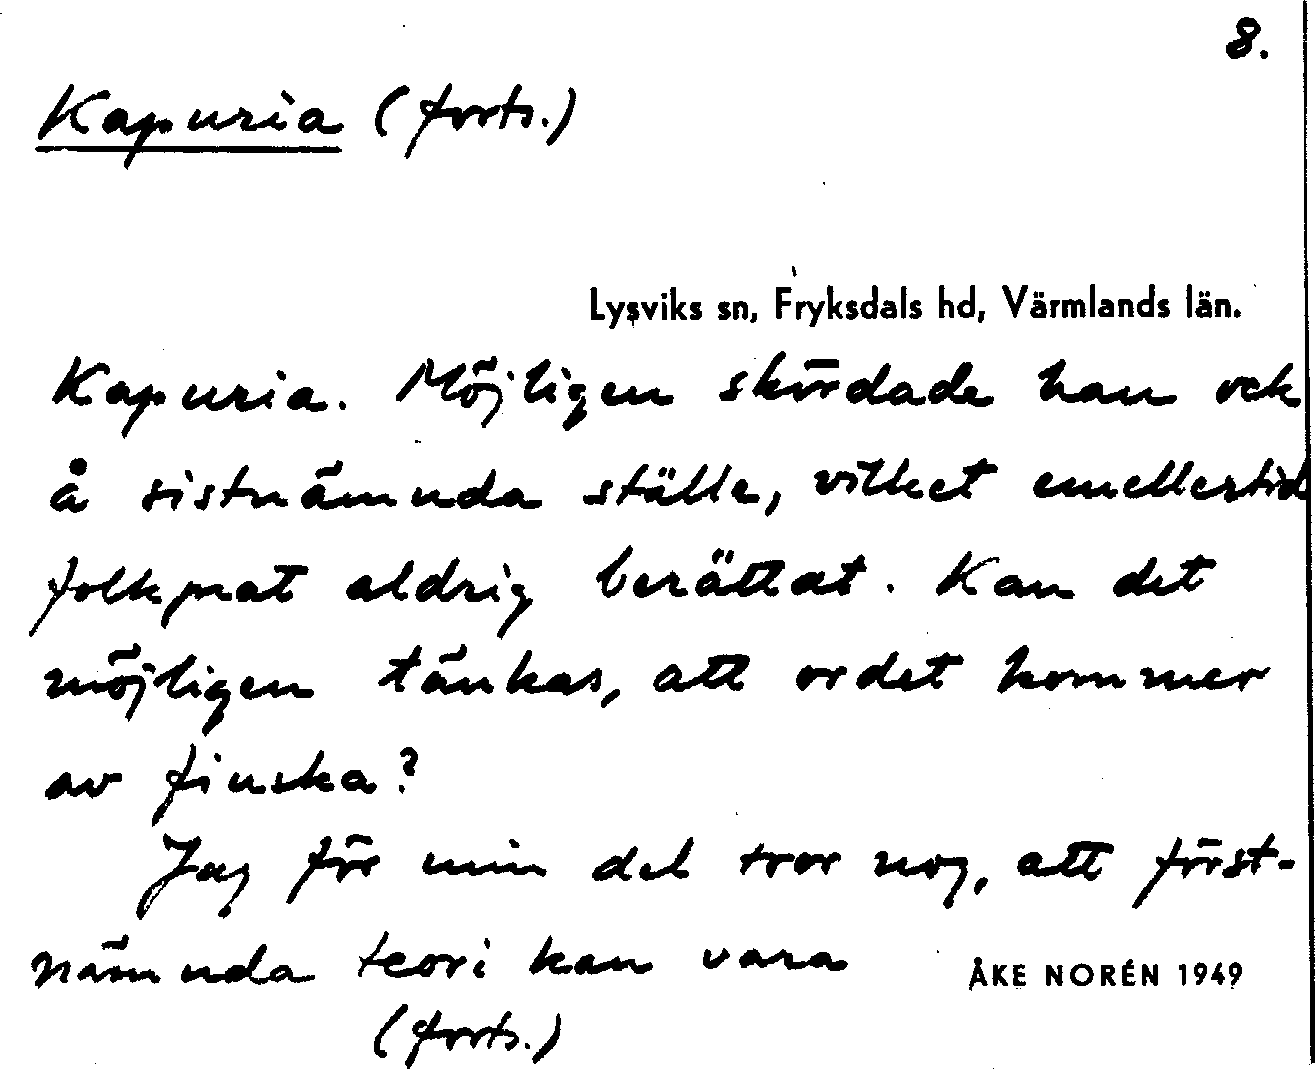 8.
Kapuria (forts.)
Lysviks sn, Fryksdals hd, Värmlands län.
Kapuria. Möjligen skördade han ock
å sistnämnda ställe, vilket emellertid
folkprat aldrig berättat. Kan det
möjligen tänkas, att ordet kommer
av finska?
Jag för min del tror nog, att först-
nämnda teori kan vara
ÅKE NORÉN 1949
(forts.)